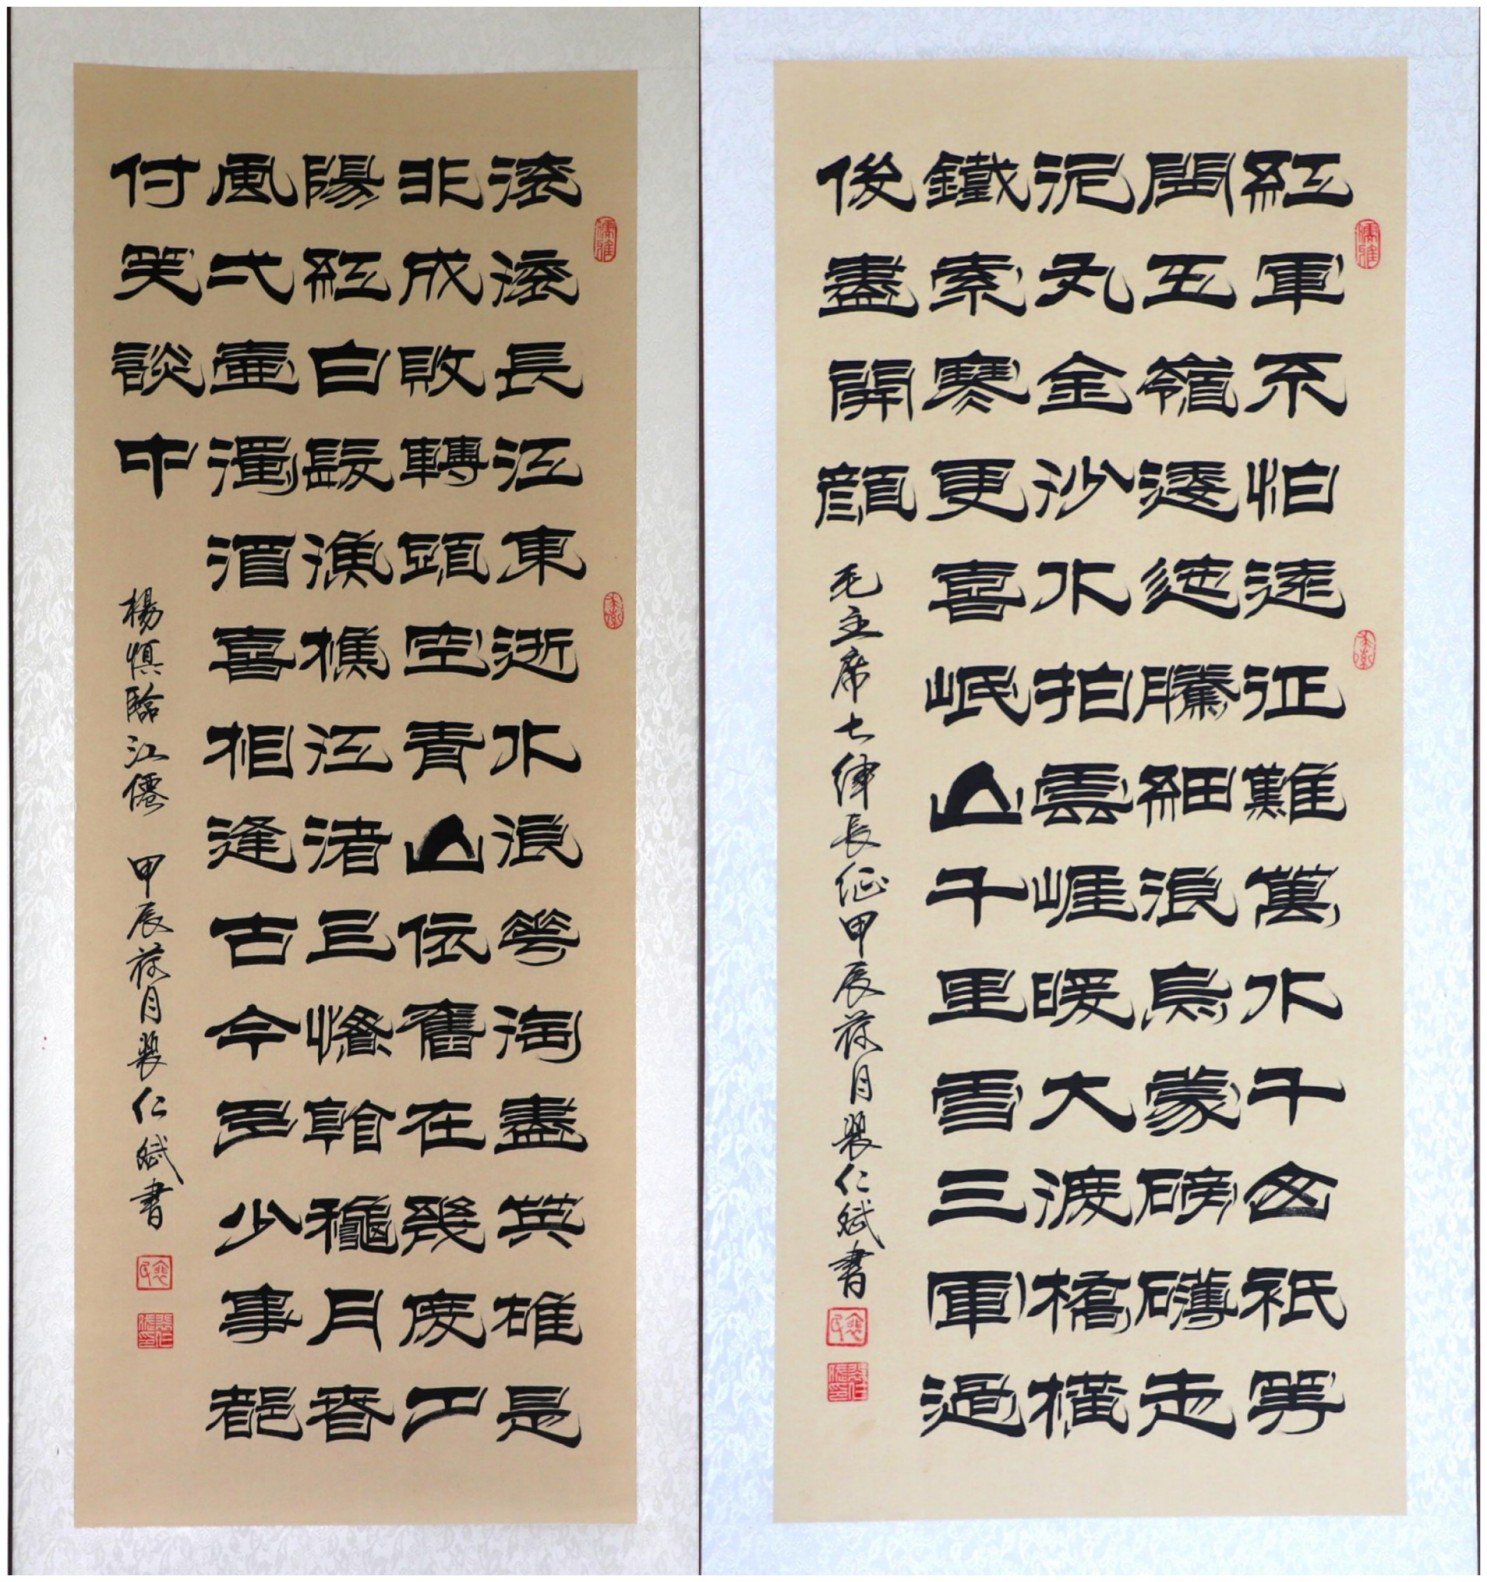 紅軍不怕遠征難萬水千山祇等
閒五嶺逶迤騰細浪烏蒙磅礴走
泥丸金沙水拍雲崖暖大渡橋橫
鐵索寒更喜岷山千里雪三軍過
後盡開顏
毛主席七律長征甲辰荷月仁斌書
滾滾長江東逝水浪花淘盡英雄是
非成敗轉頭空青山依舊在幾度夕
陽紅白髮漁樵江渚上慣看秋月春
風弌壺濁酒喜相逢古今多少事都
付笑談中
楊慎臨江僊 甲辰荷月仁斌書